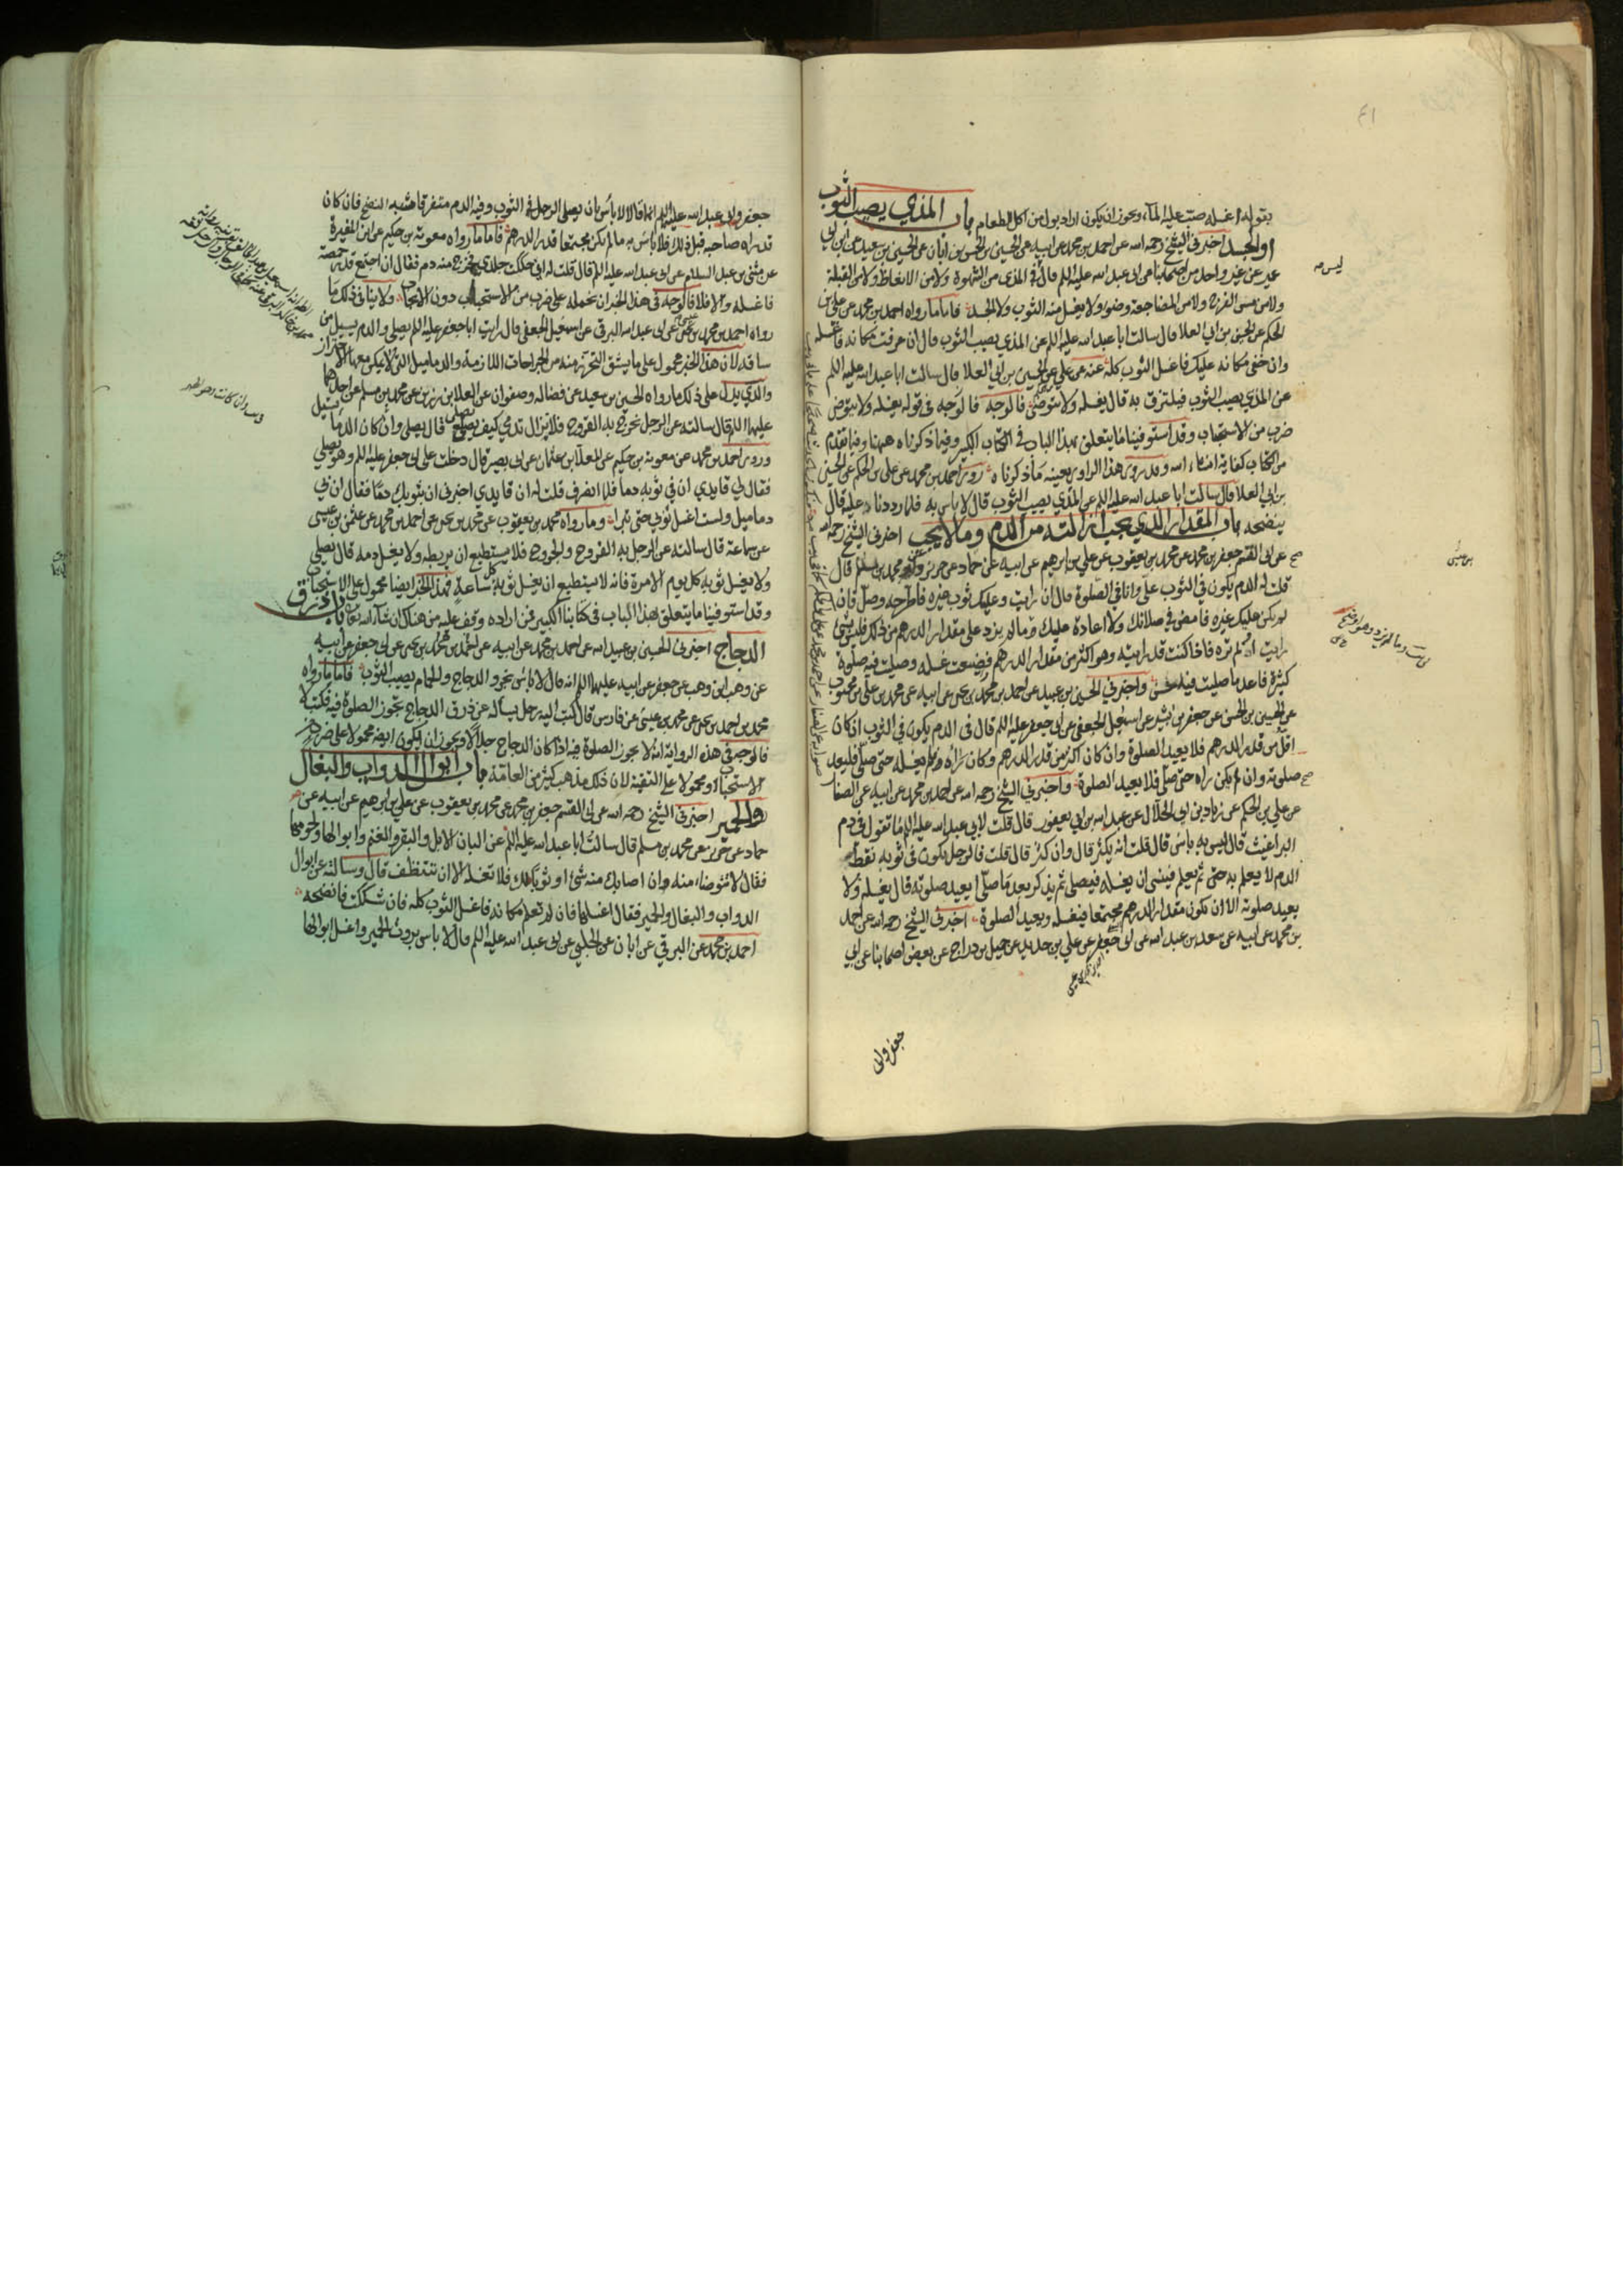 بقوله اغسله صب عليه الماء ويجوز ان يكون اراد بول من اكل الطعام باب المذي يصيب الثوب
او الجسد اخبرني الشيخ رحمه الله عن احمد بن محمد عن ابيه عن الحسين بن الحسن بن ابان عن الحسين بن سعيد عن ابن ابي
عمير عن غير واحد من اصحابنا عن ابي عبد الله عليه السلم قال ليس في المذي من الشهوة ولا من الانعاظ ولا من القبلة
ولا من مس الفرج ولا من المضاجعة وضوء ولا يغسل منه الثوب ولا الجسد فاما ما رواه احمد بن محمد عن علي بن
الحكم عن الحسين بن ابي العلا قال سالت ابا عبد الله عليه السلم عن المذي يصيب الثوب قال ان عرفت مكانه فاغسله
وان خفي مكانه عليك فاغسل الثوب كله عنه عن علي عن الحسين بن ابي العلا قال سالت ابا عبد الله عليه السلم
عن المذي يصيب الثوب فيلتزق به قال يغسله ولا يتوضى فالوجه في قوله يغسله ولا يتوضى
ضرب من الاستحباب وقد استوفينا ما يتعلق بهذا الباب في الكتاب الكبير وفيما ذكرناه ههنا وفيما تقدم
من الكتاب كفاية انشاء الله وقد روى هذا الراوي بعينه ما ذكرناه روى احمد بن محمد عن علي بن الحكم عن الحسين
بن ابي العلا قال سالت ابا عبد الله عليه السلم عن المذي يصيب الثوب قال لا باس به فلما رددنا عليه قال
ينضحه باب المقدار الذي يجب ازالته من الدم وما لا يجب اخبرني الشيخ رحمه الله
عن ابي القسم جعفر بن محمد عن محمد بن يعقوب عن علي بن ابرهيم عن ابيه عن حماد عن حريز عن محمد بن مسلم قال
قلت له الدم يكون في الثوب علي وانا في الصلوة قال ان رايت وعليك ثوب غيره فاطرحه وصل فان
لم يكن عليك غيره فامض في صلاتك ولا اعادة عليك وما لم يزد على مقدار الدرهم من ذلك فليس بشئ
رايته او لم تره فاذا كنت قد رايته وهو اكثر من مقدار الدرهم فضيعت غسله وصليت فيه صلوة
كثيرة فاعد ما صليت فيه واخبرني الحسين بن عبيد الله عن احمد بن محمد بن يحيى عن ابيه عن محمد بن علي بن محبوب
عن الحسين بن الحسن عن جعفر بن بشير عن اسمعيل الجعفي عن ابي جعفر عليه السلم قال في الدم يكون في الثوب ان كان
اقل من قدر الدرهم فلا يعيد الصلوة وان كان اكثر من قدر الدرهم وكان رآه ولم يغسله حتى صلى فليعد
صلوته وان لم يكن رآه حتى صلى فلا يعيد الصلوة واخبرني الشيخ رحمه الله عن احمد بن محمد عن ابيه عن الصفار
عن علي بن الحكم عن زياد بن ابي الحلال عن عبد الله بن ابي يعفور قال قلت لابي عبد الله عليه السلم ما تقول في دم
البراغيث قال ليس به باس قال قلت انه يكثر قال وان كثر قال قلت فالرجل يكون في ثوبه نقط
الدم لا يعلم به حتى ثم يعلم فينسى ان يغسله فيصلي ثم يذكر بعد ما صلى ايعيد صلوته قال يغسله ولا
يعيد صلوته الا ان يكون مقدار الدرهم مجتمعا فيغسله ويعيد الصلوة اخبرني الشيخ رحمه الله عن احمد
بن محمد عن ابيه عن سعد بن عبد الله عن ابي جعفر عن علي بن حديد عن جميل بن دراج عن بعض اصحابنا عن ابي
جعفر وابي
جعفر وابي عبد الله عليهما السلم انهما قالا لا باس بان يصلي الرجل في الثوب وفيه الدم متفرقا شبه النضح فان كان
قد رآه صاحبه قبل ذلك فلا باس به ما لم يكن مجتمعا قدر الدرهم فاما ما رواه معوية بن حكيم عن ابن المغيرة
عن مثنى بن عبد السلام عن ابي عبد الله عليه السلم قال قلت له اني حككت جلدي فخرج منه دم فقال ان اجتمع قدر حمصة
فاغسله والا فلا فالوجه في هذا الخبر ان نحمله على ضرب من الاستحباب دون الايجاب ولا ينافي ذلك ما
رواه احمد بن محمد بن عيسى عن ابي عبد الله البرقي عن اسمعيل الجعفي قال رايت ابا جعفر عليه السلم يصلي والدم يسيل من
ساقه لان هذا الخبر محمول على ما يشق التحرز منه من الجراحات اللازمة والدماميل التي لا يمكن معها الاحتراز
والذي يدل على ذلك ما رواه الحسين بن سعيد عن فضاله وصفوان عن العلا بن رزين عن محمد بن مسلم عن احدهما
عليهما السلم قال سالته عن الرجل تخرج به القروح فلا يزال تدمي كيف يصلي قال يصلي وان كان الدماء تسيل
وروى احمد بن محمد عن معوية بن حكيم عن المعلا بن عثمان عن ابي بصير قال دخلت على ابي جعفر عليه السلم وهو يصلي
فقال لي قايدي ان في ثوبه دما فلما انصرف قلت له ان قايدي اخبرني ان بثوبك دما فقال ان بي
دماميل ولست اغسل ثوبي حتى تبرا وما رواه محمد بن يعقوب عن محمد بن يحيى عن احمد بن محمد عن عثمن بن عيسى
عن سماعة قال سالته عن الرجل به القروح والجروح فلا يستطيع ان يربطه ولا يغسل دمه قال يصلي
ولا يغسل ثوبه كل يوم الا مرة فانه لا يستطيع ان يغسل ثوبه كل ساعة فهذا الخبر ايضا محمول على الاستحباب
وقد استوفينا ما يتعلق بهذا الباب في كتابنا الكبير فمن اراده وقف عليه من هناك ان شاء الله تعالى باب ذرق
الدجاج اخبرني الحسين بن عبيد الله عن احمد بن محمد عن ابيه عن احمد بن محمد بن يحيى عن ابي جعفر عن ابيه
عن وهب ابن وهب عن جعفر عن ابيه عليهما السلم انه قال لا باس بخرو الدجاج والحمام يصيب الثوب فاما ما رواه
محمد بن احمد بن يحيى عن محمد بن عيسى عن فارس قال كتب اليه رجل يساله عن ذرق الدجاج تجوز الصلوة فيه فكتب لا
فالوجه في هذه الرواية انه لا يجوز الصلوة فيه اذا كان الدجاج جلالا ويجوز ان يكون ايضا محمولا على ضرب من
الاستحباب او محمولا على التقية لان ذلك مذهب كثير من العامة باب ابوال الدواب والبغال
والحمير اخبرني الشيخ رحمه الله عن ابي القسم جعفر بن محمد عن محمد بن يعقوب عن علي بن ابرهيم عن ابيه عن
حماد عن حريز عن محمد بن مسلم قال سالت ابا عبد الله عليه السلم عن البان الابل والبقر والغنم وابوالها ولحومها
فقال لا تتوضا منه وان اصابك منه شئ او ثوبا لك فلا تغسله الا ان تتنظف قال وسالته عن ابوال
الدواب والبغال والحمير فقال اغسلها فان لم تعلم مكانه فاغسل الثوب كله فان شككت فانضحه
احمد بن محمد عن البرقي عن ابان عن الحلبي عن ابي عبد الله عليه السلم قال لا باس بروث الحمير واغسل ابوالها